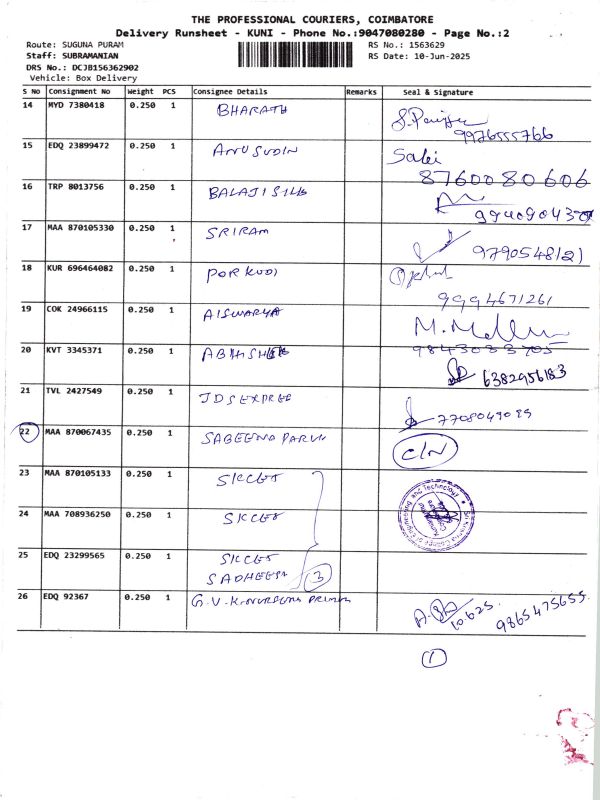 THE PROFESSIONAL COURIERS, COIMBATORE
Delivery Runsheet - KUNI - Phone No.:9047080280 - Page No.:2
Route: SUGUNA PURAM
RS No.: 1563629
Staff: SUBRAMANIAN
RS Date: 10-Jun-2025
DRS No.: DCJB156362902
Vehicle: Box Delivery
S No Consignment No Weight PCS Consignee Details Remarks Seal & Signature
14 MYD 7380418 0.250 1 BHARATH
9976555766
15 EDQ 23899472 0.250 1 ANUSUDIN Sabi
8760080606
16 TRP 8013756 0.250 1 BALAJI SILK
17 MAA 870105330 0.250 1 SRIRAM
9790548121
18 KUR 696464082 0.250 1 PORKODI
9994671261
19 COK 24966115 0.250 1 AISWARYA
20 KVT 3345371 0.250 1 ABHISHEK
6382956183
21 TVL 2427549 0.250 1 JDS EXPREE
22 MAA 870067435 0.250 1 SABEENA PARVI C/N
23 MAA 870105133 0.250 1 SKCET
24 MAA 708936250 0.250 1 SKCET
25 EDQ 23299565 0.250 1 SKCET
SADHEESH 3
26 EDQ 92367 0.250 1 G.V.K NURSERY PRIMARY
10.6.25 9865475655
1